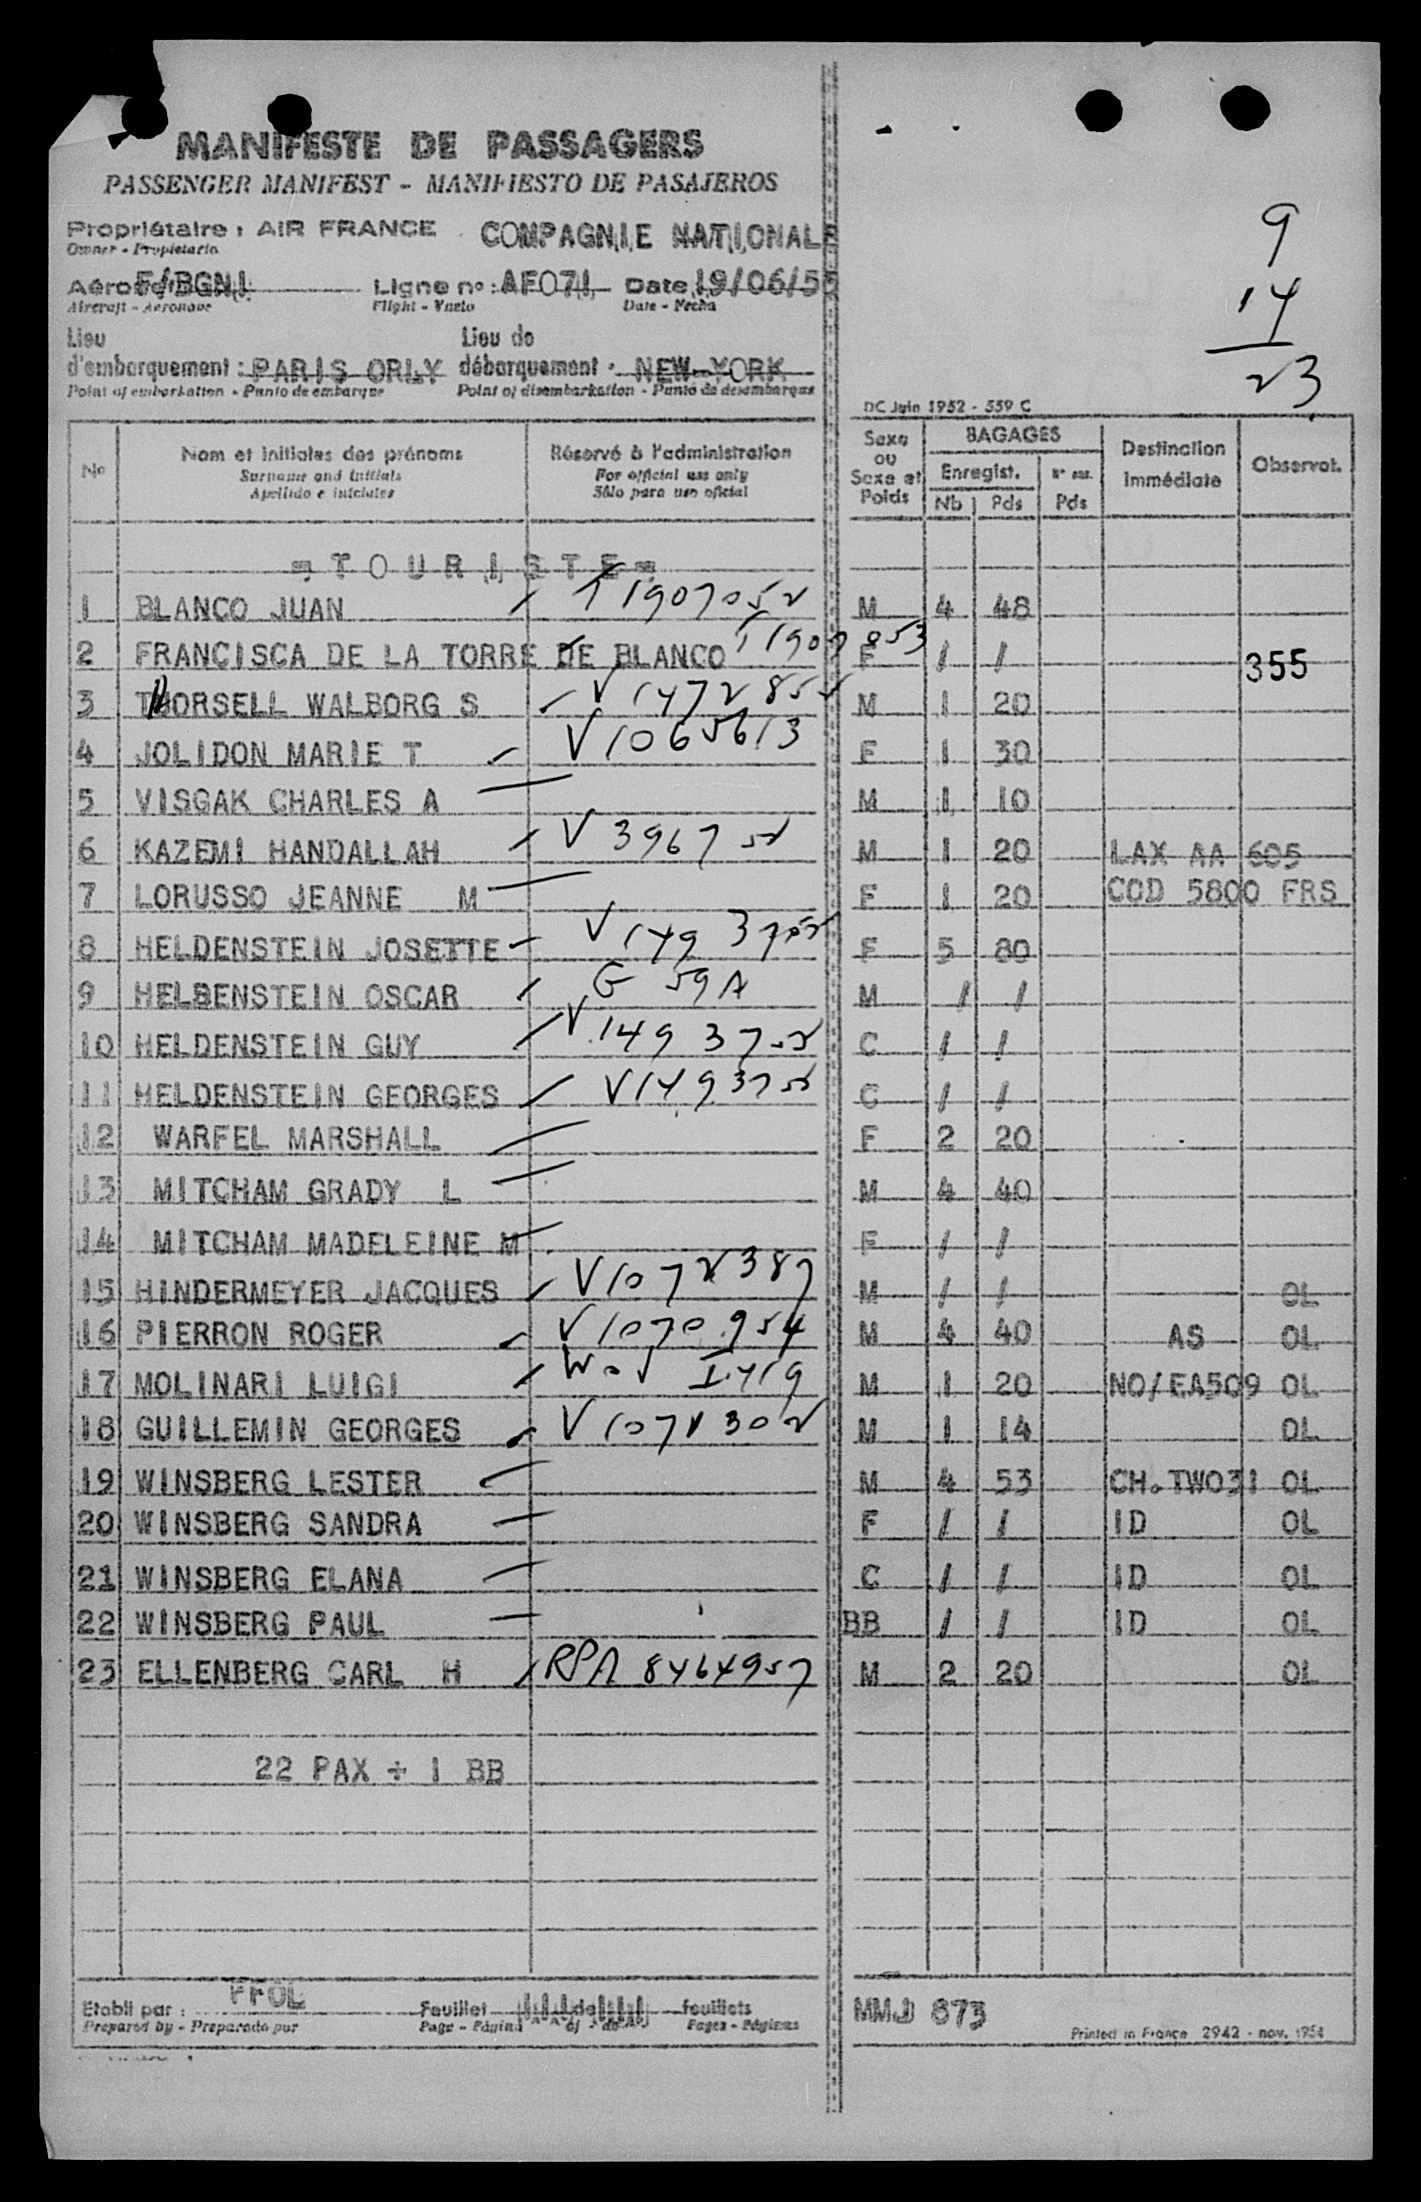 MANIFESTE DE PASSAGERS
PASSENGER MANIFEST - MANIFIESTO DE PASAJEROS
Propriétaire : AIR FRANCE COMPAGNIE NATIONALE
Owner - Propietario
F/BGNI Ligne n° : AF071 Date 19/06/55
Aircraft - Aeronave Flight - Vuelo Date - Fecha
9
14
23
Lieu Lieu de
d'embarquement : PARIS ORLY débarquement : NEW-YORK
Point of embarkation - Punto de embarque Point of disembarkation - Punto de desembarque
DC Juin 1952 - 559 C
No Nom et initiales des prénoms Réservé à l'administration Sexe ou Sexe et Poids BAGAGES Destination Immédiate Observat.
Surname and initials For official use only Enregist.
Apellido e iniciales Sólo para uso oficial Nb Pds Pds
= T O U R I S T E =
1 BLANCO JUAN T1907052 M 4 48
2 FRANCISCA DE LA TORRE DE BLANCO T1907053 F / / 355
3 THORSELL WALBORG S M 1 20
4 JOLIDON MARIE T V1065613 F 1 30
5 VISGAK CHARLES A M 1 10
6 KAZEMI HANDALLAH M 1 20 LAX AA 605
7 LORUSSO JEANNE M F 1 20 COD 5800 FRS
8 HELDENSTEIN JOSETTE F 5 80
9 HELBENSTEIN OSCAR G 59A M / /
10 HELDENSTEIN GUY C / /
11 HELDENSTEIN GEORGES C / /
12 WARFEL MARSHALL F 2 20
13 MITCHAM GRADY L M 4 40
14 MITCHAM MADELEINE M F / /
15 HINDERMEYER JACQUES V1072387 M / / OL
16 PIERRON ROGER V1070954 M 4 40 AS OL
17 MOLINARI LUIGI M 1 20 NO/EA509 OL
18 GUILLEMIN GEORGES V1072302 M 1 14 OL
19 WINSBERG LESTER M 4 53 CH.TW031 OL
20 WINSBERG SANDRA F / / ID OL
21 WINSBERG ELANA C / / ID OL
22 WINSBERG PAUL BB / / ID OL
23 ELLENBERG CARL H RPA 8464957 M 2 20 OL
22 PAX ÷ 1 BB
Etabli par : FFOL Feuillet de feuillets MMJ 873
Prepared by - Preparado por Page - Página of - de Pages - Páginas Printed in France 2942 - nov. 1954